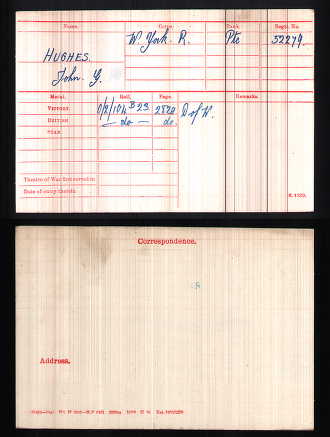 Name. Corps. Rank. Regtl. No.
HUGHES. W. York. R. Pte 52279.
John. Y.
Medal. Roll. Page. Remarks.
VICTORY. O/2/104 B23. 2828 D of W.
BRITISH — do — do.
STAR.
Theatre of War first served in
Date of entry therein
K. 1380.
Correspondence.
Address.